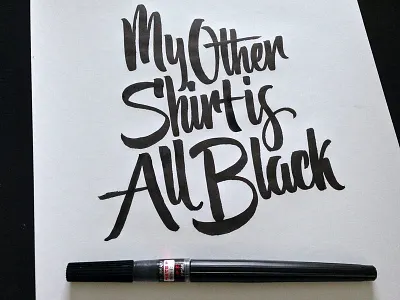 My Other
Shirt is
All Black